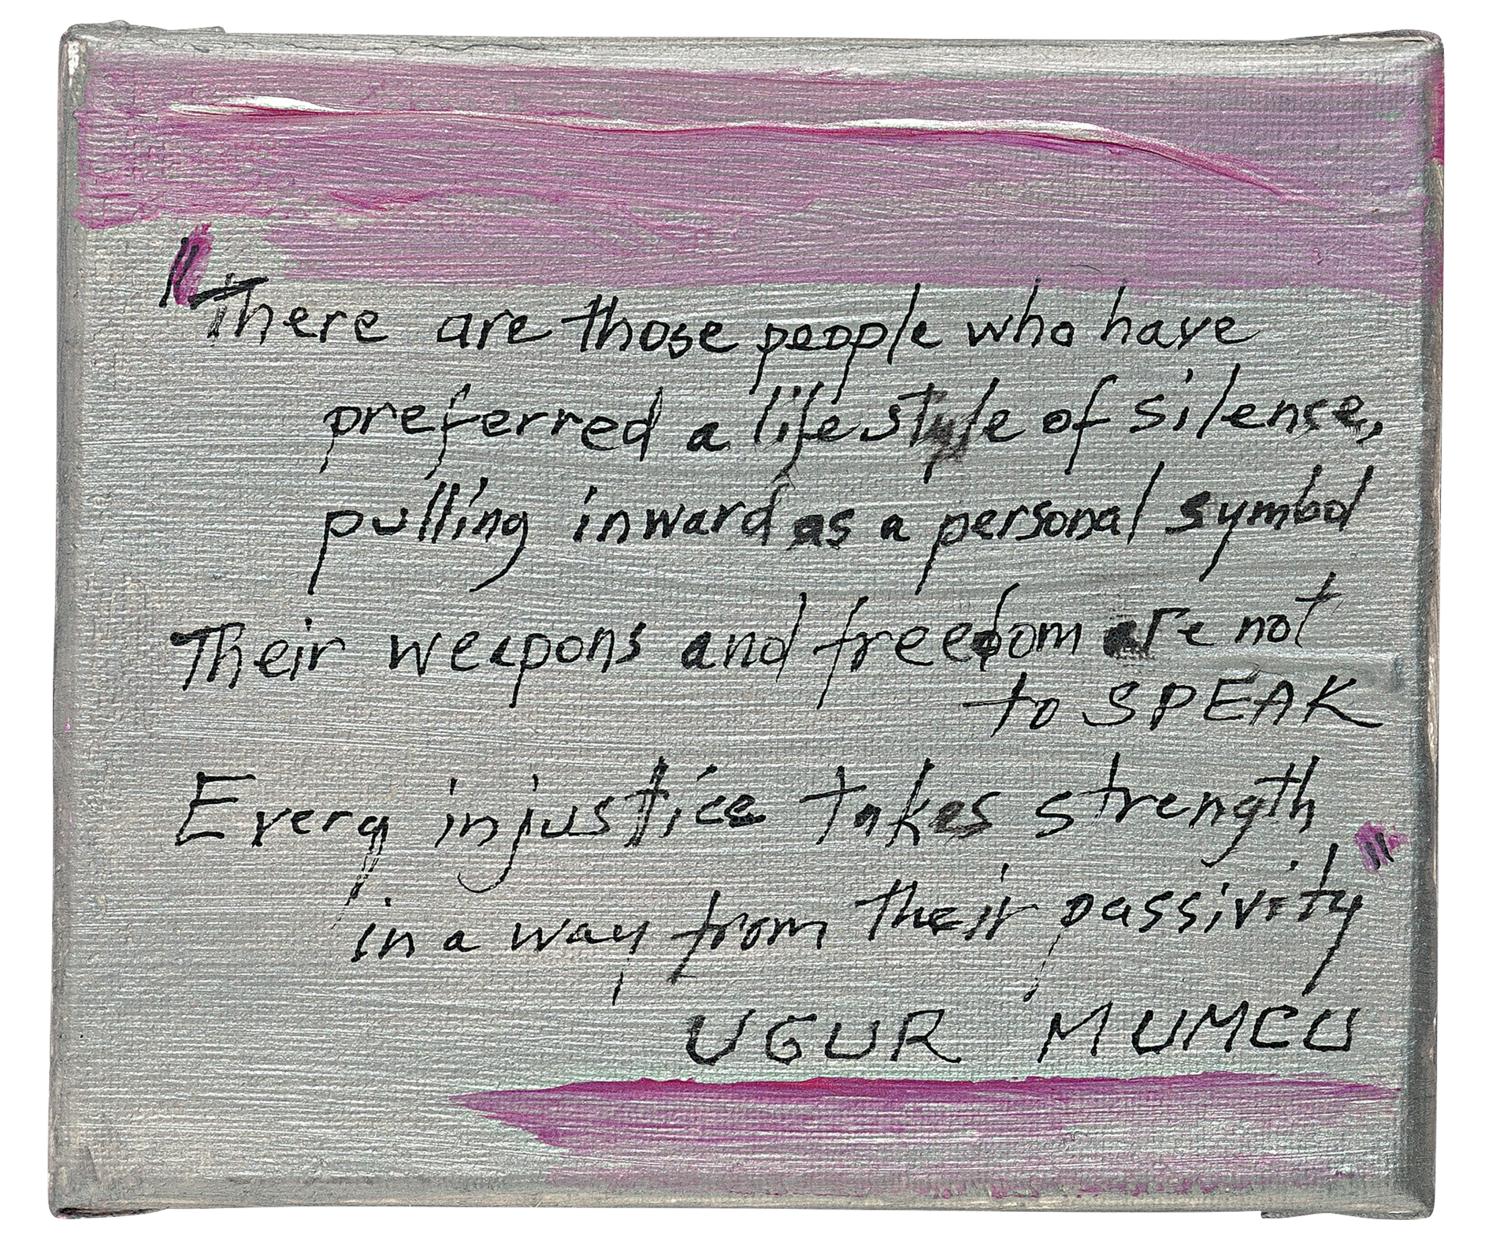 "There are those people who have
preferred a life style of silence,
pulling inward as a personal symbol
Their weapons and freedom are not
to SPEAK
Every injustice takes strength
in a way from their passivity"
UGUR MUMCU